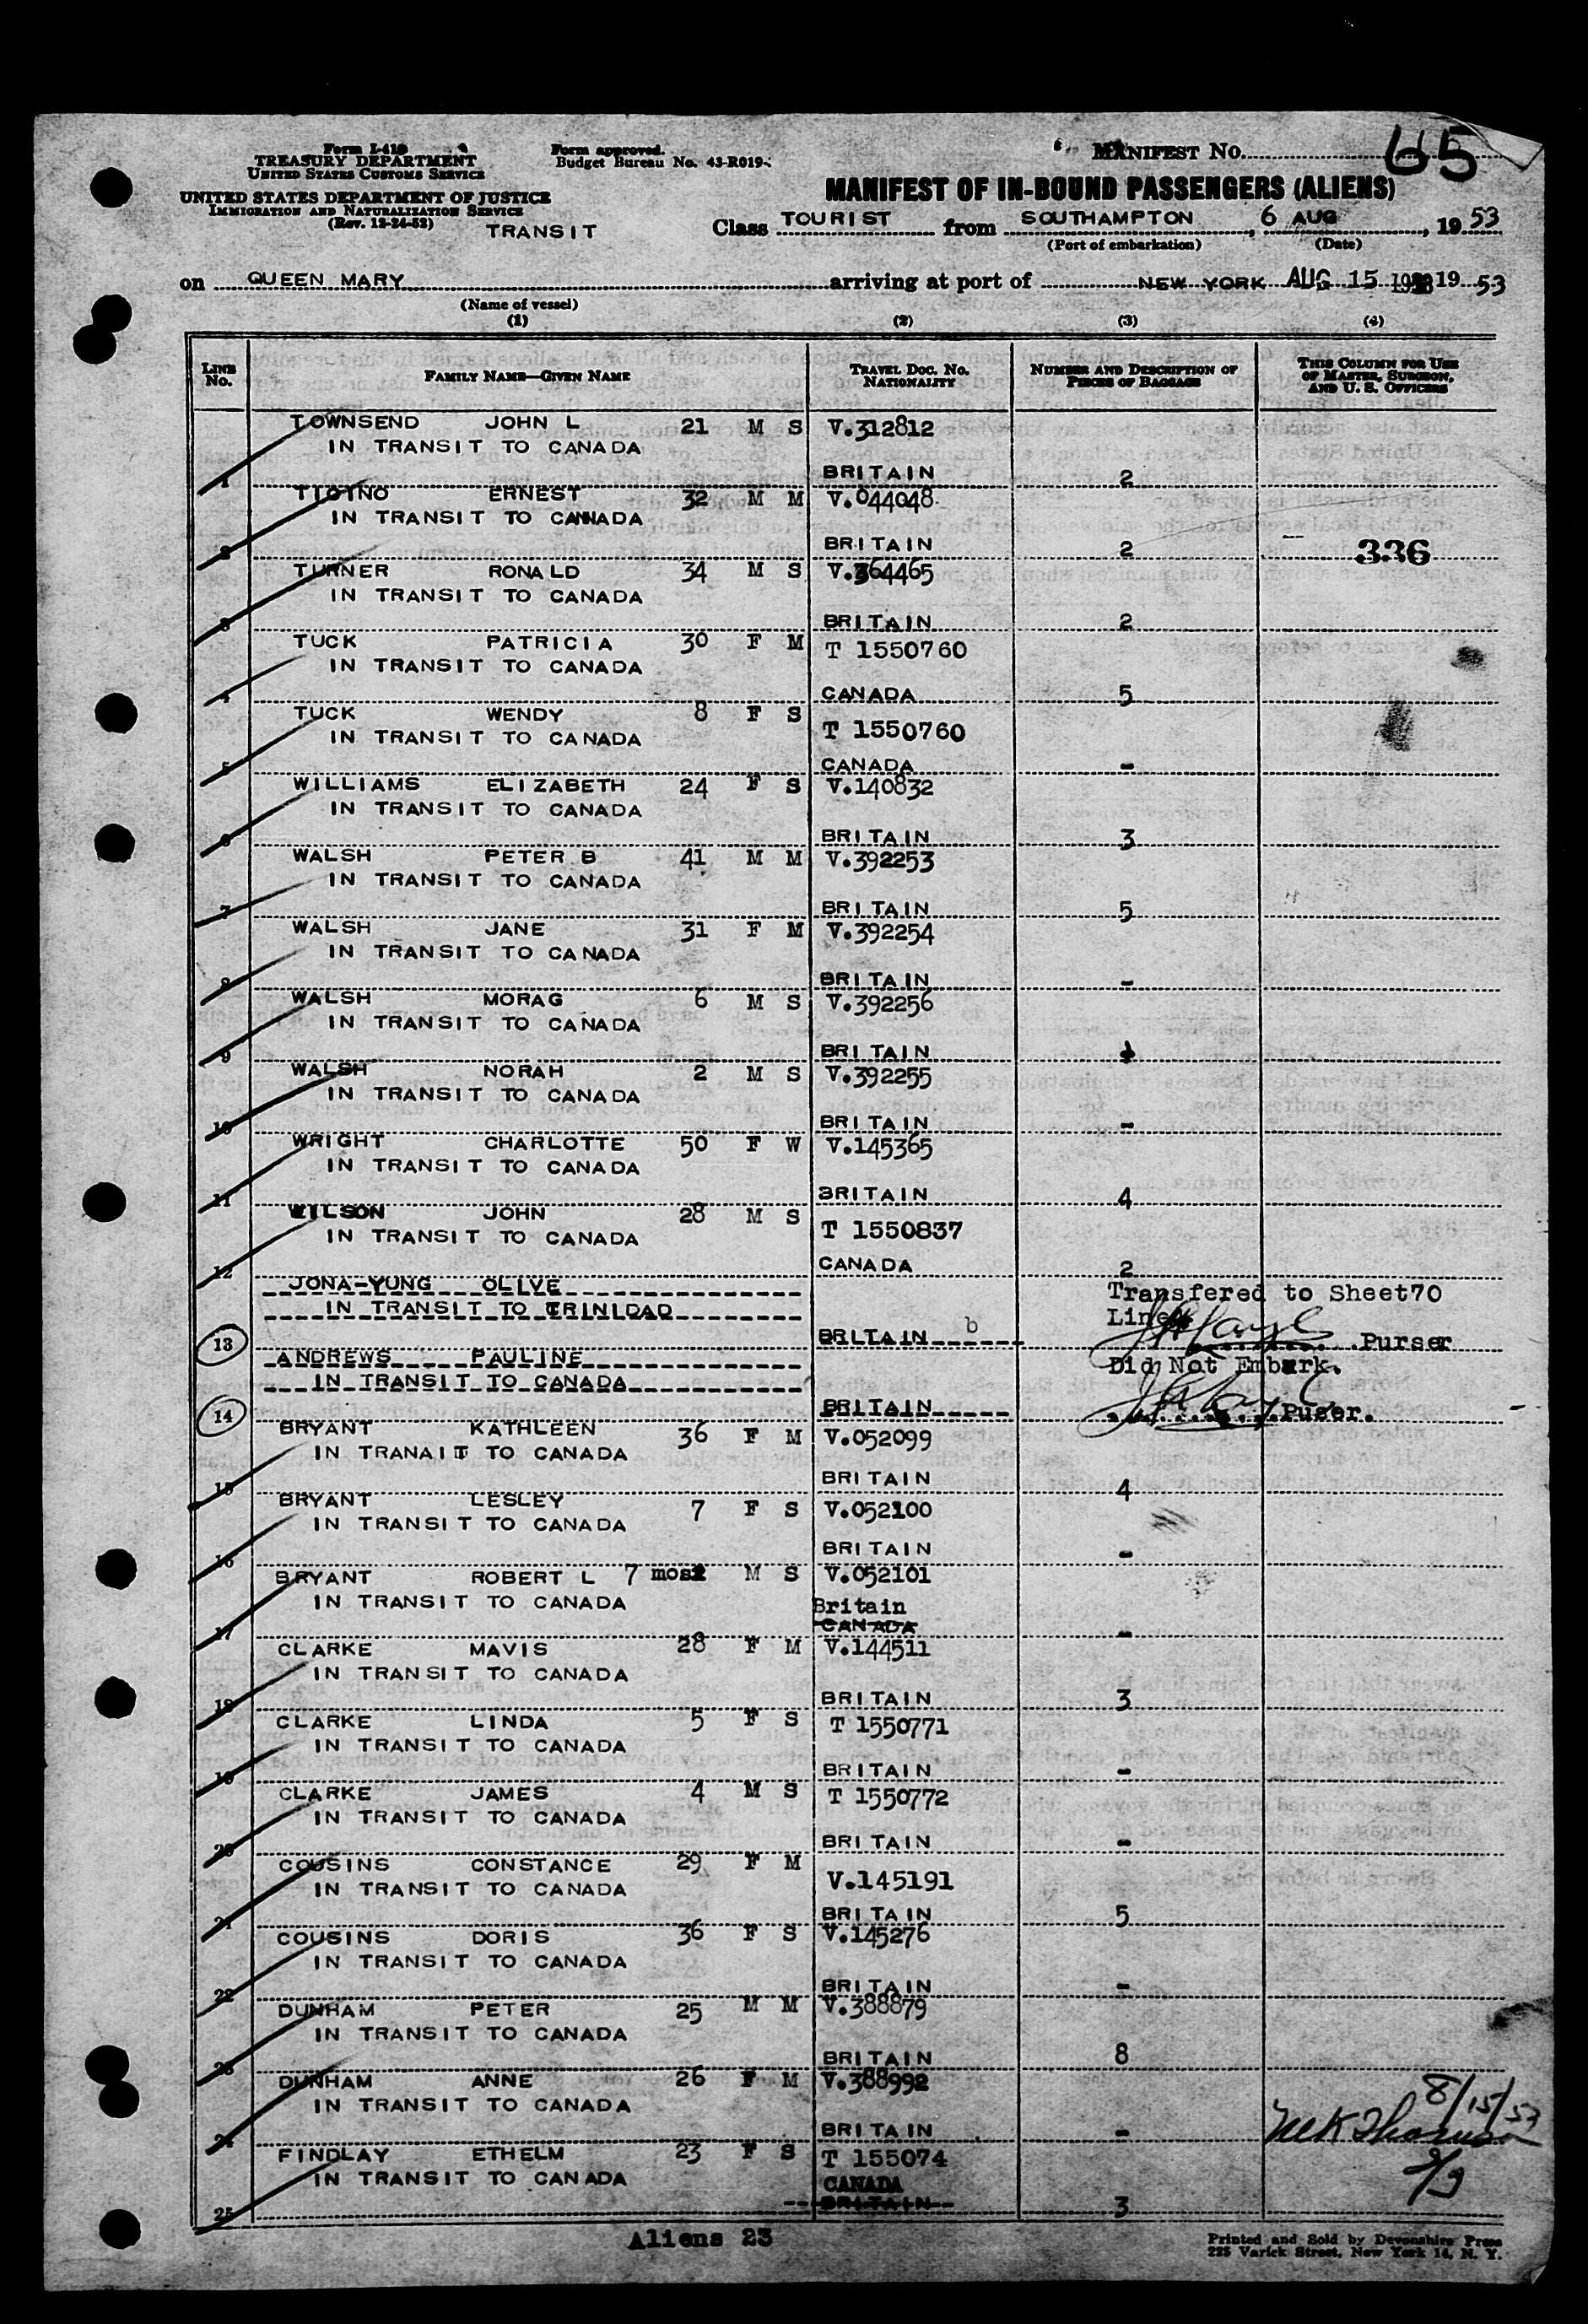 Form I-418
TREASURY DEPARTMENT
UNITED STATES CUSTOMS SERVICE
UNITED STATES DEPARTMENT OF JUSTICE
IMMIGRATION AND NATURALIZATION SERVICE
(Rev. 12-24-52)
TRANSIT
Form approved.
Budget Bureau No. 43-R019-
MANIFEST No. 65
MANIFEST OF IN-BOUND PASSENGERS (ALIENS)
Class TOURIST from SOUTHAMPTON, 6 AUG, 1953
(Port of embarkation) (Date)
on QUEEN MARY arriving at port of NEW YORK AUG 15 1953 19 53
(Name of vessel)
(1) (2) (3) (4)
LINE No. FAMILY NAME—GIVEN NAME TRAVEL DOC. NO. NATIONALITY NUMBER AND DESCRIPTION OF PIECES OF BAGGAGE THIS COLUMN FOR USE OF MASTER, SURGEON, AND U. S. OFFICERS
TOWNSEND JOHN L 21 M S V.312812
IN TRANSIT TO CANADA
1 BRITAIN 2
TICINO ERNEST 32 M M V.044048
IN TRANSIT TO CANNADA
2 BRITAIN 2 336
TURNER RONALD 34 M S V.364465
IN TRANSIT TO CANADA
3 BRITAIN 2
TUCK PATRICIA 30 F M T 1550760
IN TRANSIT TO CANADA
4 CANADA 5
TUCK WENDY 8 F S T 1550760
IN TRANSIT TO CANADA
5 CANADA -
WILLIAMS ELIZABETH 24 F S V.140832
IN TRANSIT TO CANADA
6 BRITAIN 3
WALSH PETER B 41 M M V.392253
IN TRANSIT TO CANADA
7 BRITAIN 5
WALSH JANE 31 F M V.392254
IN TRANSIT TO CANADA
8 BRITAIN -
WALSH MORAG 6 M S V.392256
IN TRANSIT TO CANADA
9 BRITAIN
WALSH NORAH 2 M S V.392255
IN TRANSIT TO CANADA
10 BRITAIN -
WRIGHT CHARLOTTE 50 F W V.145365
IN TRANSIT TO CANADA
11 BRITAIN 4
WILSON JOHN 28 M S T 1550837
IN TRANSIT TO CANADA
12 CANADA 2
JONA-YUNG OLIVE Transfered to Sheet70
IN TRANSIT TO TRINIDAD Line
13 BRITAIN b Purser
ANDREWS PAULINE Did Not Embark.
IN TRANSIT TO CANADA
14 BRITAIN Puser.
BRYANT KATHLEEN 36 F M V.052099
IN TRANAIT TO CANADA
15 BRITAIN 4
BRYANT LESLEY 7 F S V.052100
IN TRANSIT TO CANADA
16 BRITAIN -
BRYANT ROBERT L 7 mos M S V.052101
IN TRANSIT TO CANADA Britain
17 CANADA -
CLARKE MAVIS 28 F M V.144511
IN TRANSIT TO CANADA
18 BRITAIN 3
CLARKE LINDA 5 F S T 1550771
IN TRANSIT TO CANADA
19 BRITAIN -
CLARKE JAMES 4 M S T 1550772
IN TRANSIT TO CANADA
20 BRITAIN -
COUSINS CONSTANCE 29 F M V.145191
IN TRANSIT TO CANADA
21 BRITAIN 5
COUSINS DORIS 36 F S V.145276
IN TRANSIT TO CANADA
22 BRITAIN -
DUNHAM PETER 25 M M V.388879
IN TRANSIT TO CANADA
23 BRITAIN 8
DUNHAM ANNE 26 F M V.388992
IN TRANSIT TO CANADA 8/15/53
24 BRITAIN -
FINDLAY ETHELM 23 F S T 155074
IN TRANSIT TO CANADA CANADA
25 BRITAIN 3
Aliens 23
Printed and Sold by Devonshire Press
225 Varick Street, New York 14, N. Y.